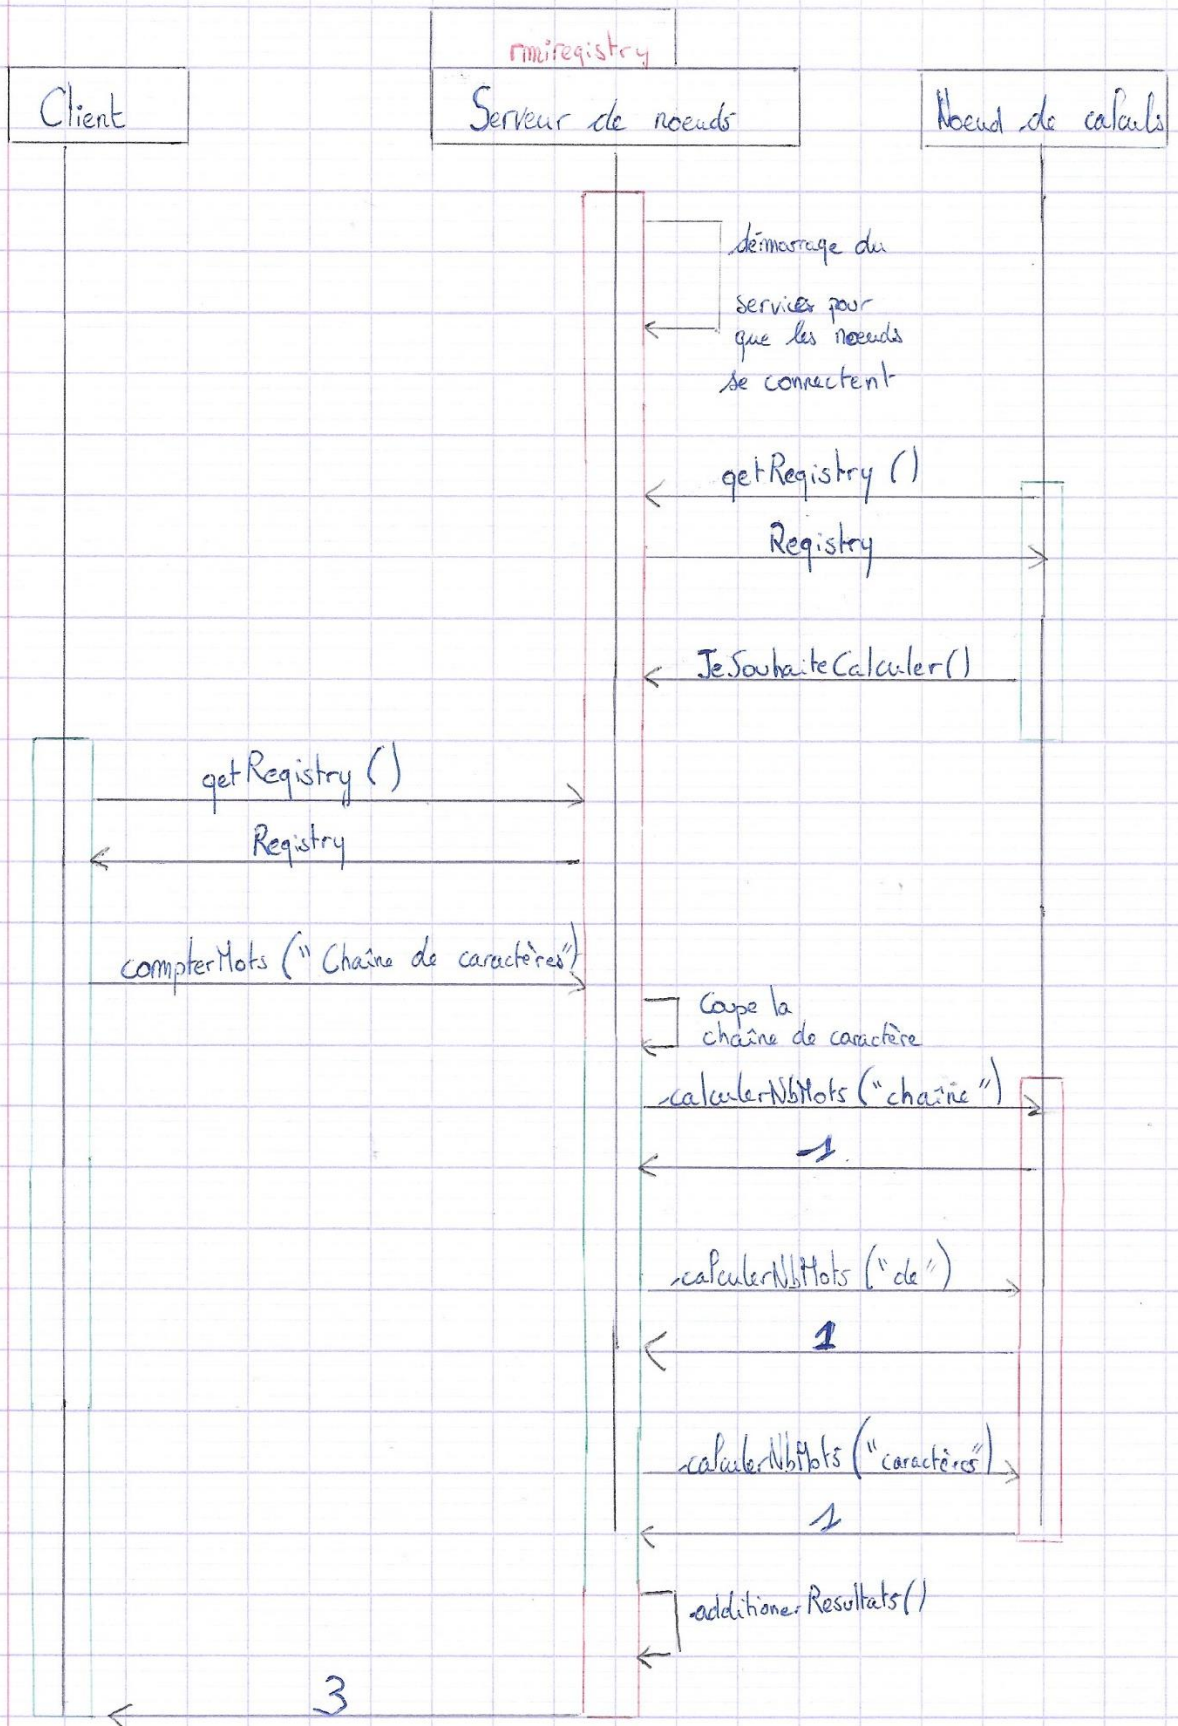 rmiregistry
Client
Serveur de noeuds
Noeud de calculs
démarrage du
services pour
que les noeuds
se connectent
getRegistry ()
Registry
JeSouhaiteCalculer()
getRegistry ()
Registry
compterMots ("Chaîne de caractères")
Coupe la
chaîne de caractère
calculerNbMots ("chaîne")
1
calculerNbMots ("de")
1
calculerNbMots ("caractères")
1
additionerResultats()
3